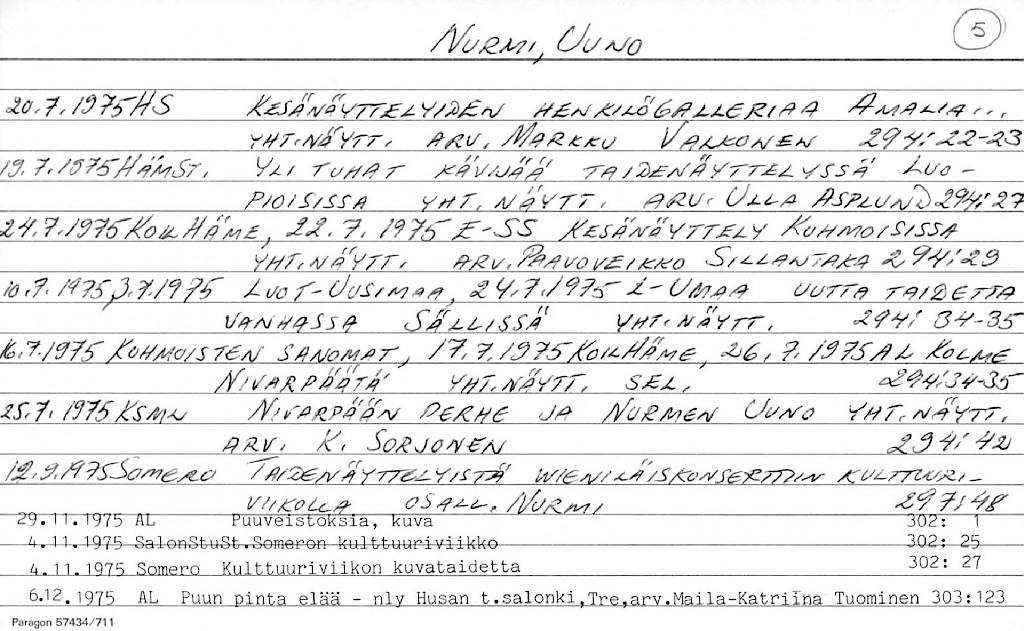 5
NURMI, UUNO
20.7.1975 HS KESÄNÄYTTELYIDEN HENKILÖGALLERIAA AMALIA...
YHT.NÄYTT. ARV. MARKKU VALKONEN 294: 22-23
19.7.1975 HÄMST. YLI TUHAT KÄVIJÄÄ TAIDENÄYTTELYSSÄ LUO-
PIOISISSA YHT. NÄYTT. ARV. ULLA ASPLUND 294: 27
24.7.1975 KOILHÄME, 22.7.1975 E-SS KESÄNÄYTTELY KUHMOISISSA
YHT.NÄYTT. ARV. PAAVOVEIKKO SILLANTAKA 294: 29
10.7.1975, 3.7.1975 LUOT-UUSIMAA, 24.7.1975 L-UMAA UUTTA TAIDETTA
VANHASSA SÄLLISSÄ YHT.NÄYTT. 294: 34-35
16.7.1975 KUHMOISTEN SANOMAT, 17.7.1975 KOILHÄME, 26.7.1975 AL KOLME
NIVARPÄÄTÄ YHT.NÄYTT. SEL. 294:34-35
25.7.1975 KSML NIVARPÄÄN PERHE JA NURMEN UUNO YHT.NÄYTT.
ARV. K. SORJONEN 294: 42
12.9.1975 SOMERO TAIDENÄYTTELYISTÄ WIENILÄISKONSERTTIIN KULTTUURI-
VIIKOLLA OSALL. NURMI 297: 48
29.11.1975 AL Puuveistoksia, kuva 302: 1
4.11.1975 SalonStuSt.Someron kulttuuriviikko 302: 25
4.11.1975 Somero Kulttuuriviikon kuvataidetta 302: 27
6.12.1975 AL Puun pinta elää - nly Husan t.salonki,Tre,arv.Maila-Katriina Tuominen 303:123
Paragon 57434/711